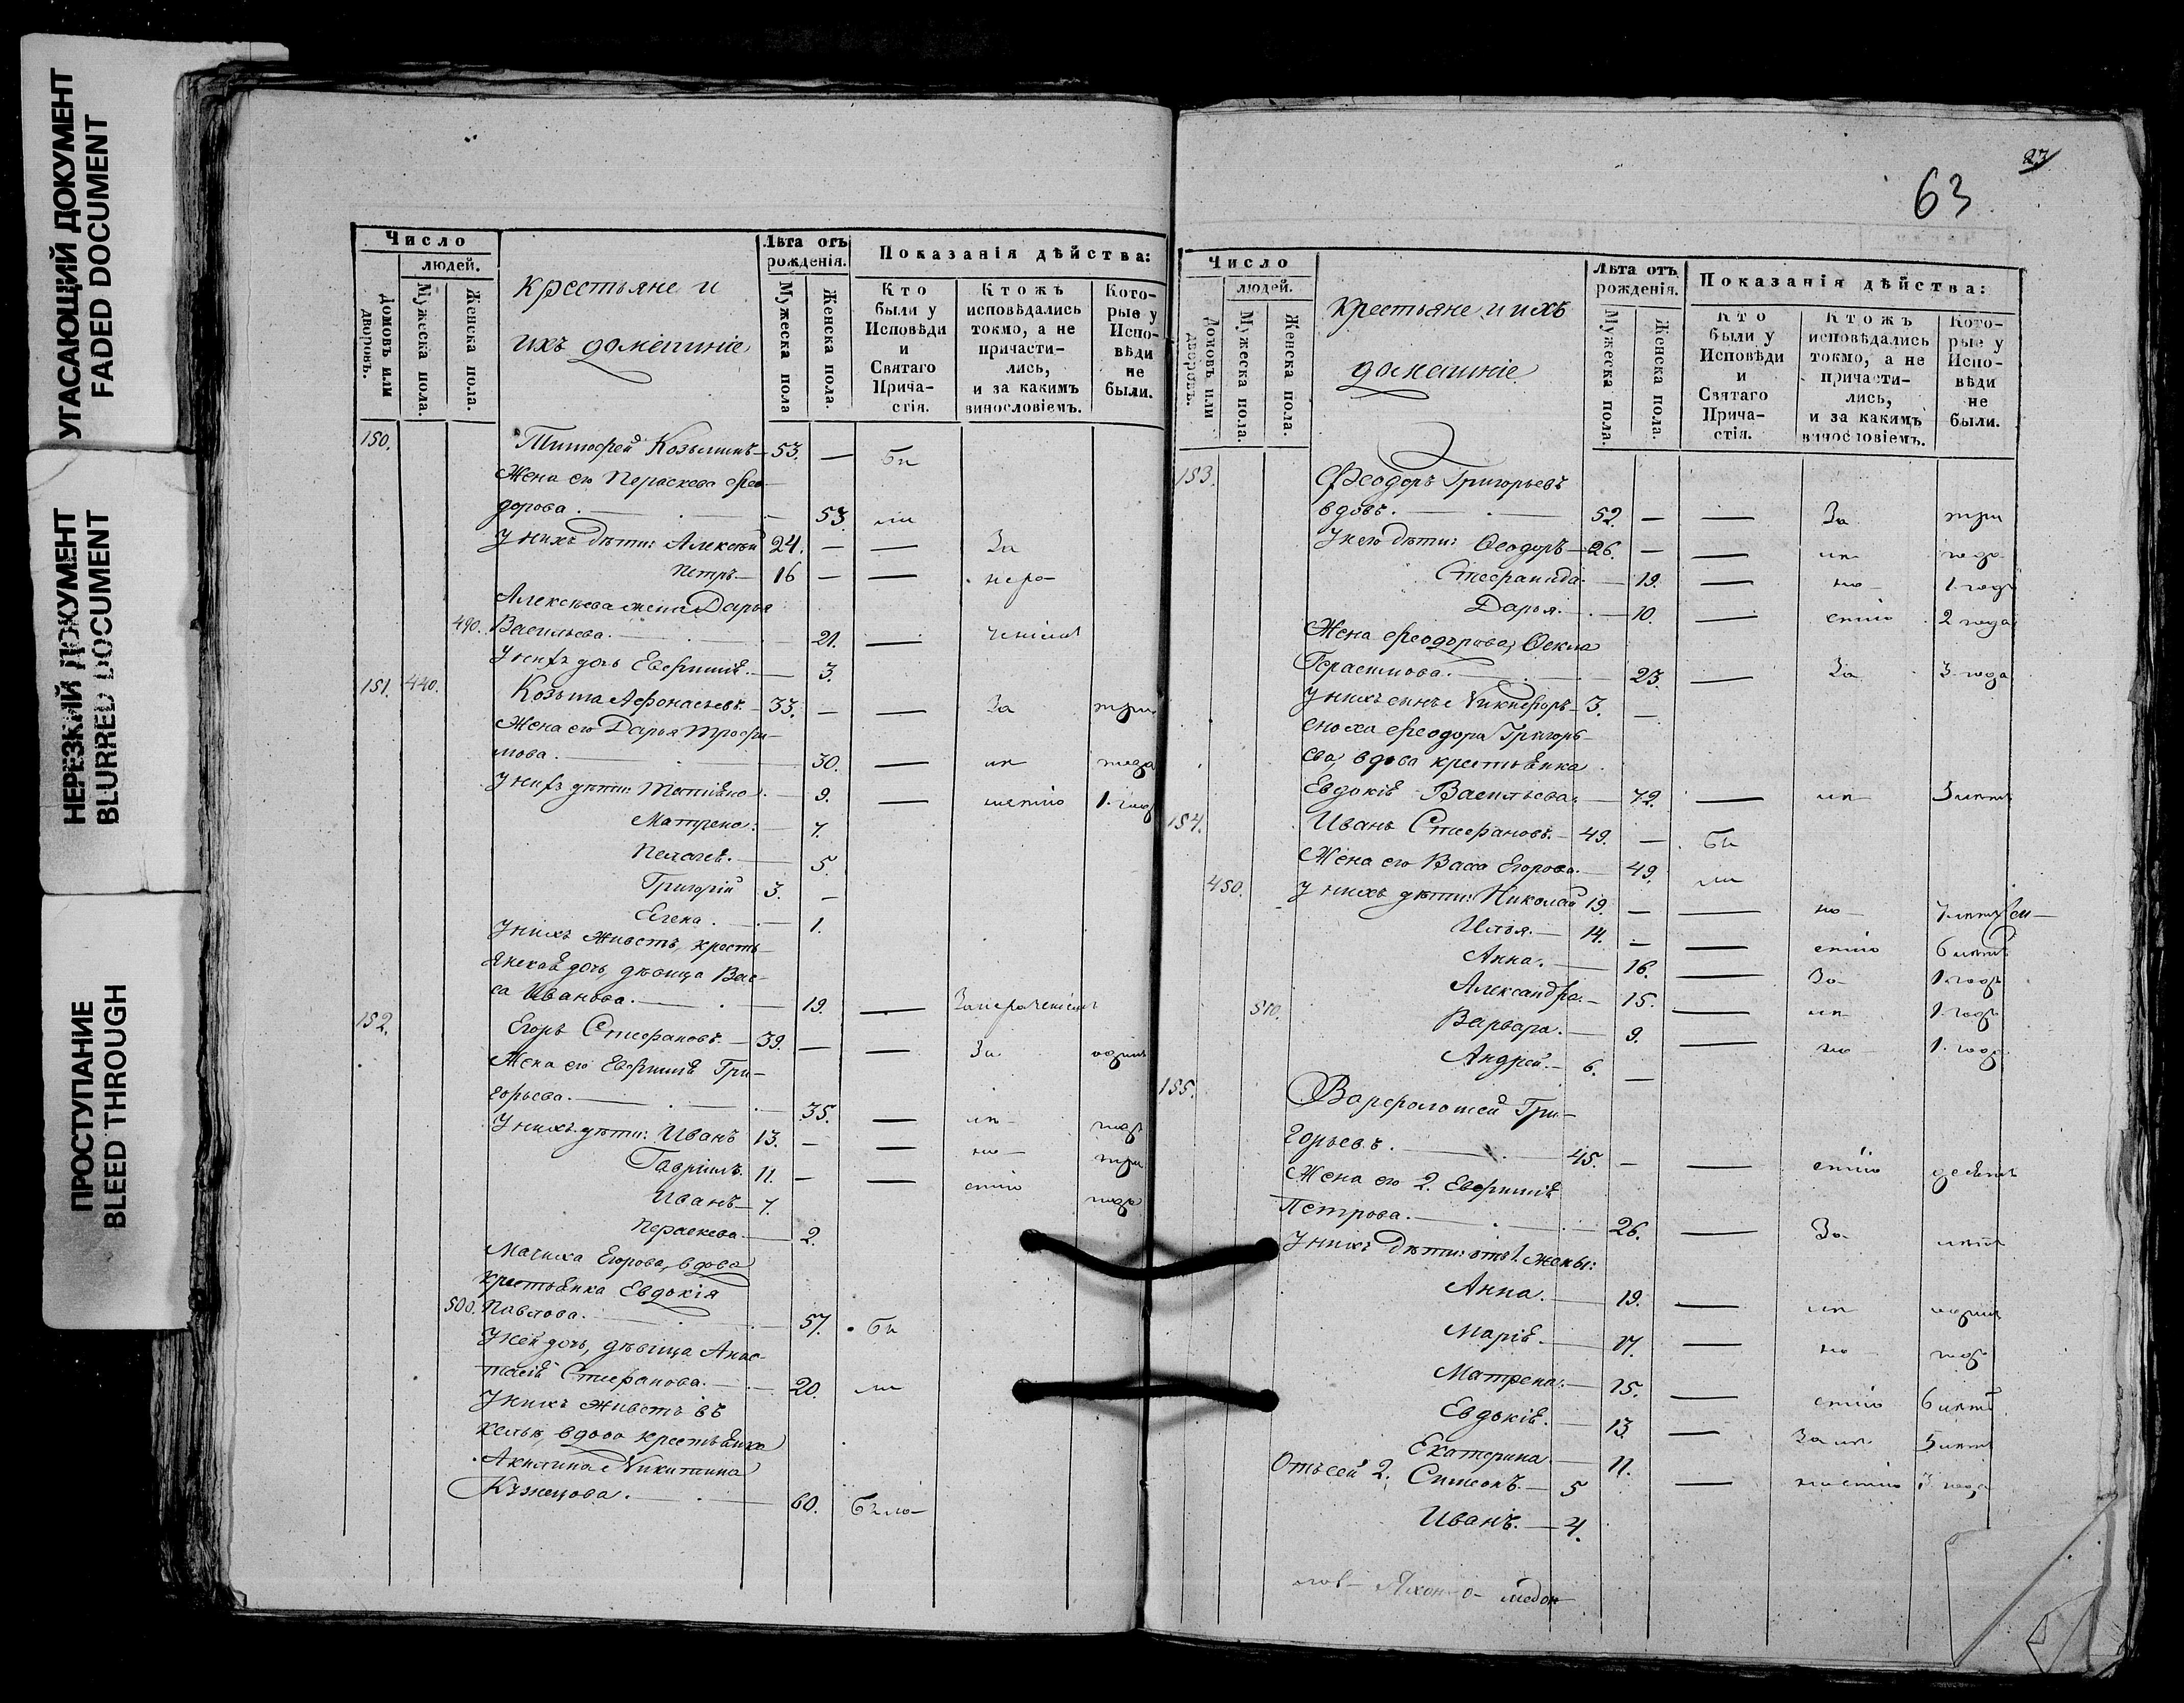 УГАСАЮЩИЙ ДОКУМЕНТ
FADED DOCUMENT
НЕРЕЗКИЙ ДОКУМЕНТ
BLURRED DOCUMENT
ПРОСТУПАНИЕ
BLEED THROUGH
Число
людей.
Домовъ или дворовъ.
Мужеска пола.
Женска пола.
крестьяне и
ихъ домашніе
Лѣта отъ рожденія.
Мужеска пола
Женска пола.
Показанія дѣйства:
Кто были у Исповѣди и Святаго Прича-стія.
Ктожъ исповѣдались токмо, а не причасти-лись, и за какимъ винословіемъ.
Кото-рые у Испо-вѣди не были.
150. Тимофей Козьминъ 53. — бы
Жена его Параскева Ѳео-
дорова. 53. ли
У нихъ дѣти: Алексѣй 24. — — За
Петръ 16 — — нера-
Алексѣева жена Дарья
490. Васильева. 21. — ченіемъ
У нихъ дочь Евфимія. 3.
151. 440. Козьма Афонасьевъ. 33. — — За три
Жена его Дарья Трофи-
мова. 30. — не года
У нихъ дѣти: Татіана. 9. — 1. годъ
Матрена. 7.
Пелагея. 5.
Григорій 3. —
Елена. 1.
У нихъ живетъ, кресть-
янская дочь, дѣвица Вас-
са Иванова. 19. — За нераченіемъ
152. Егоръ Стефановъ. 39. — — За одинъ
Жена его Евфимія Гри-
горьева. 35. — годъ
У нихъ дѣти: Иванъ 13. — — три
Гавріилъ. 11. — — года
Иванъ 7.
Параскева. 2.
Мачиха Егорова, вдова
крестьянка Евдокія
500. Павлова. 57. бы
У ней дочь, дѣвица Анас-
тасія Стефанова. 20. ли
У нихъ живетъ въ
кельи, вдова крестьянка
Акилина Никитина
Кузнецова. 60. была
63
Число
людей.
Домовъ или дворовъ.
Мужеска пола.
Женска пола.
крестьяне и ихъ
домашніе.
Лѣта отъ рожденія.
Мужеска пола.
Женска пола.
Показанія дѣйства:
Кто были у Исповѣди и Святаго Прича-стія.
Ктожъ исповѣдались токмо, а не причасти-лись, и за какимъ винословіемъ.
Кото-рые у Испо-вѣди не были.
153. Ѳеодоръ Григорьевъ
вдовъ. 52. — — За три
У него дѣти: Ѳеодоръ 26. — — года
Стефанида. 19. — 1. годъ
Дарья. 10. — 2 года
Жена Ѳеодорова, Ѳекла
Герасимова. 23. — За 3 года
У нихъ сынъ Никифоръ 3. —
сноха Ѳеодора Григорь-
ева, вдова крестьянка
Евдокія Васильева. 72. — 5 лѣтъ
154. Иванъ Стефановъ. 49. — бы
Жена его Васса Егорова. 49. ли
450. У нихъ дѣти: Николай 19. — —
Илья. 14. — — 6 лѣтъ
Анна. 16. — За 1. годъ
Александра. 15. — 1. годъ
510. Варвара. 9. — 1. годъ
Андрей. 6. —
155. Варфоломей Гри-
горьевъ. 45. — — десять
Жена его 2. Евфимія
Петрова. 26. — За лѣтъ
У нихъ дѣти: отъ 1. жены:
Анна. 19. — одинъ
Марія. 17. — годъ
Матрена. 15. — 6 лѣтъ
Евдокія. 13. — За 5 лѣтъ
Екатерина. 11. —
Отъ сей 2. Симеонъ. 5
Иванъ. 4.